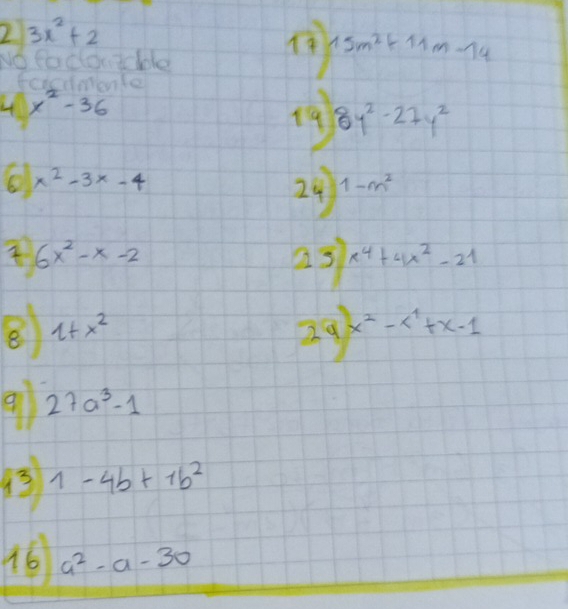 2) 3x² + 2
No factorizable
facilmente
4) x² - 36
6) x² - 3x - 4
7) 6x² - x - 2
8) 1 + x²
9) 27a³ - 1
13) 1 - 4b + 1b²
16) a² - a - 30
17) 15m² + 11m - 14
19) 8y² - 27y²
24) 1 - m²
25) x⁴ + 4x² - 21
29) x² - x¹ + x - 1